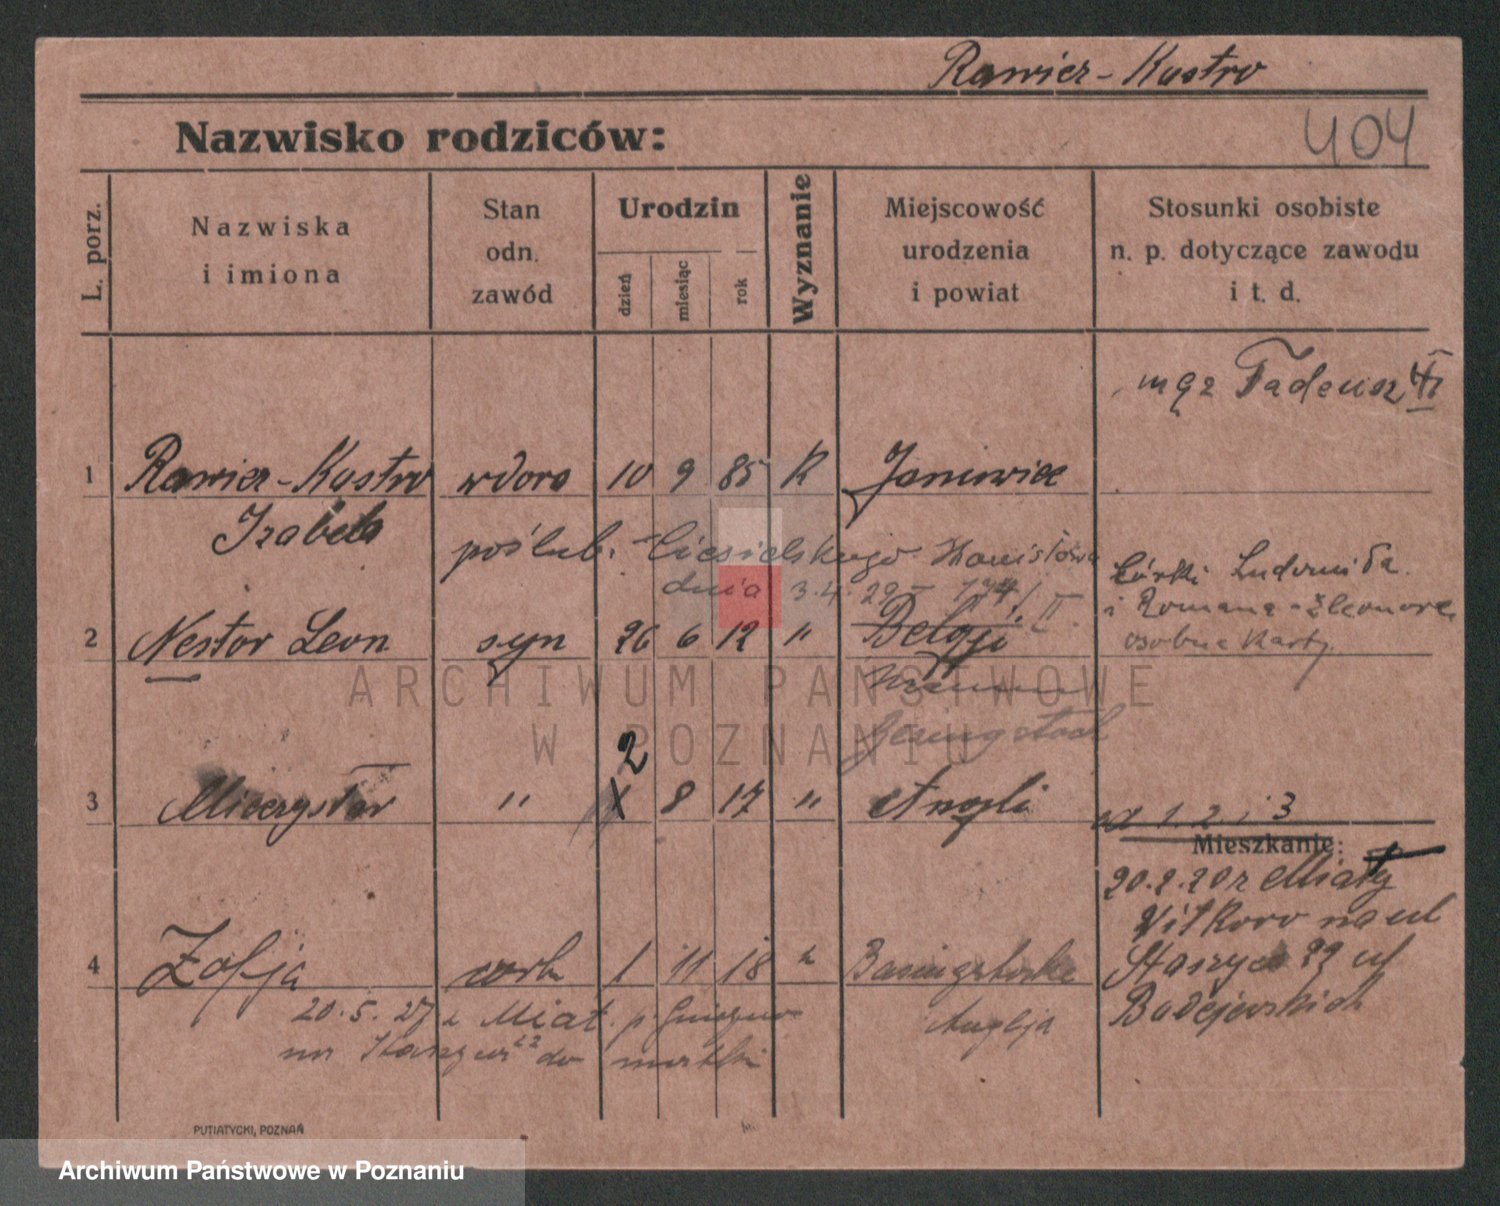 Rawicz-Kostro
404
Nazwisko rodziców:
L. porz.
Nazwiska
i imiona
Stan
odn.
zawód
Urodzin
dzień
miesiąc
rok
Wyznanie
Miejscowość
urodzenia
i powiat
Stosunki osobiste
n. p. dotyczące zawodu
i t. d.
mąż Tadeusz
1 Rawicz-Kostro wdowa 10 9 85 K Janowiec
Izabela
poślub. Ciesielskiego Stanisława
dnia 3.4.29
córki Ludomiła
i Romana-Eleonora
osobne karty
2 Nestor Leon syn 26 6 12 " Belgji
2
3 Mieczysław " 8 17 " Anglji
od 1. 2 i 3
Mieszkanie:
20.2.20 z
Witkowo na ul
Staszyca 22 ul
4 Zofja córk 1 11 18 " Basingstoke
20.5.27 z Miat. p. Gniezno
Anglja
do matki
PUTIATYCKI, POZNAŃ
ARCHIWUM PAŃSTWOWE
W POZNANIU
Archiwum Państwowe w Poznaniu